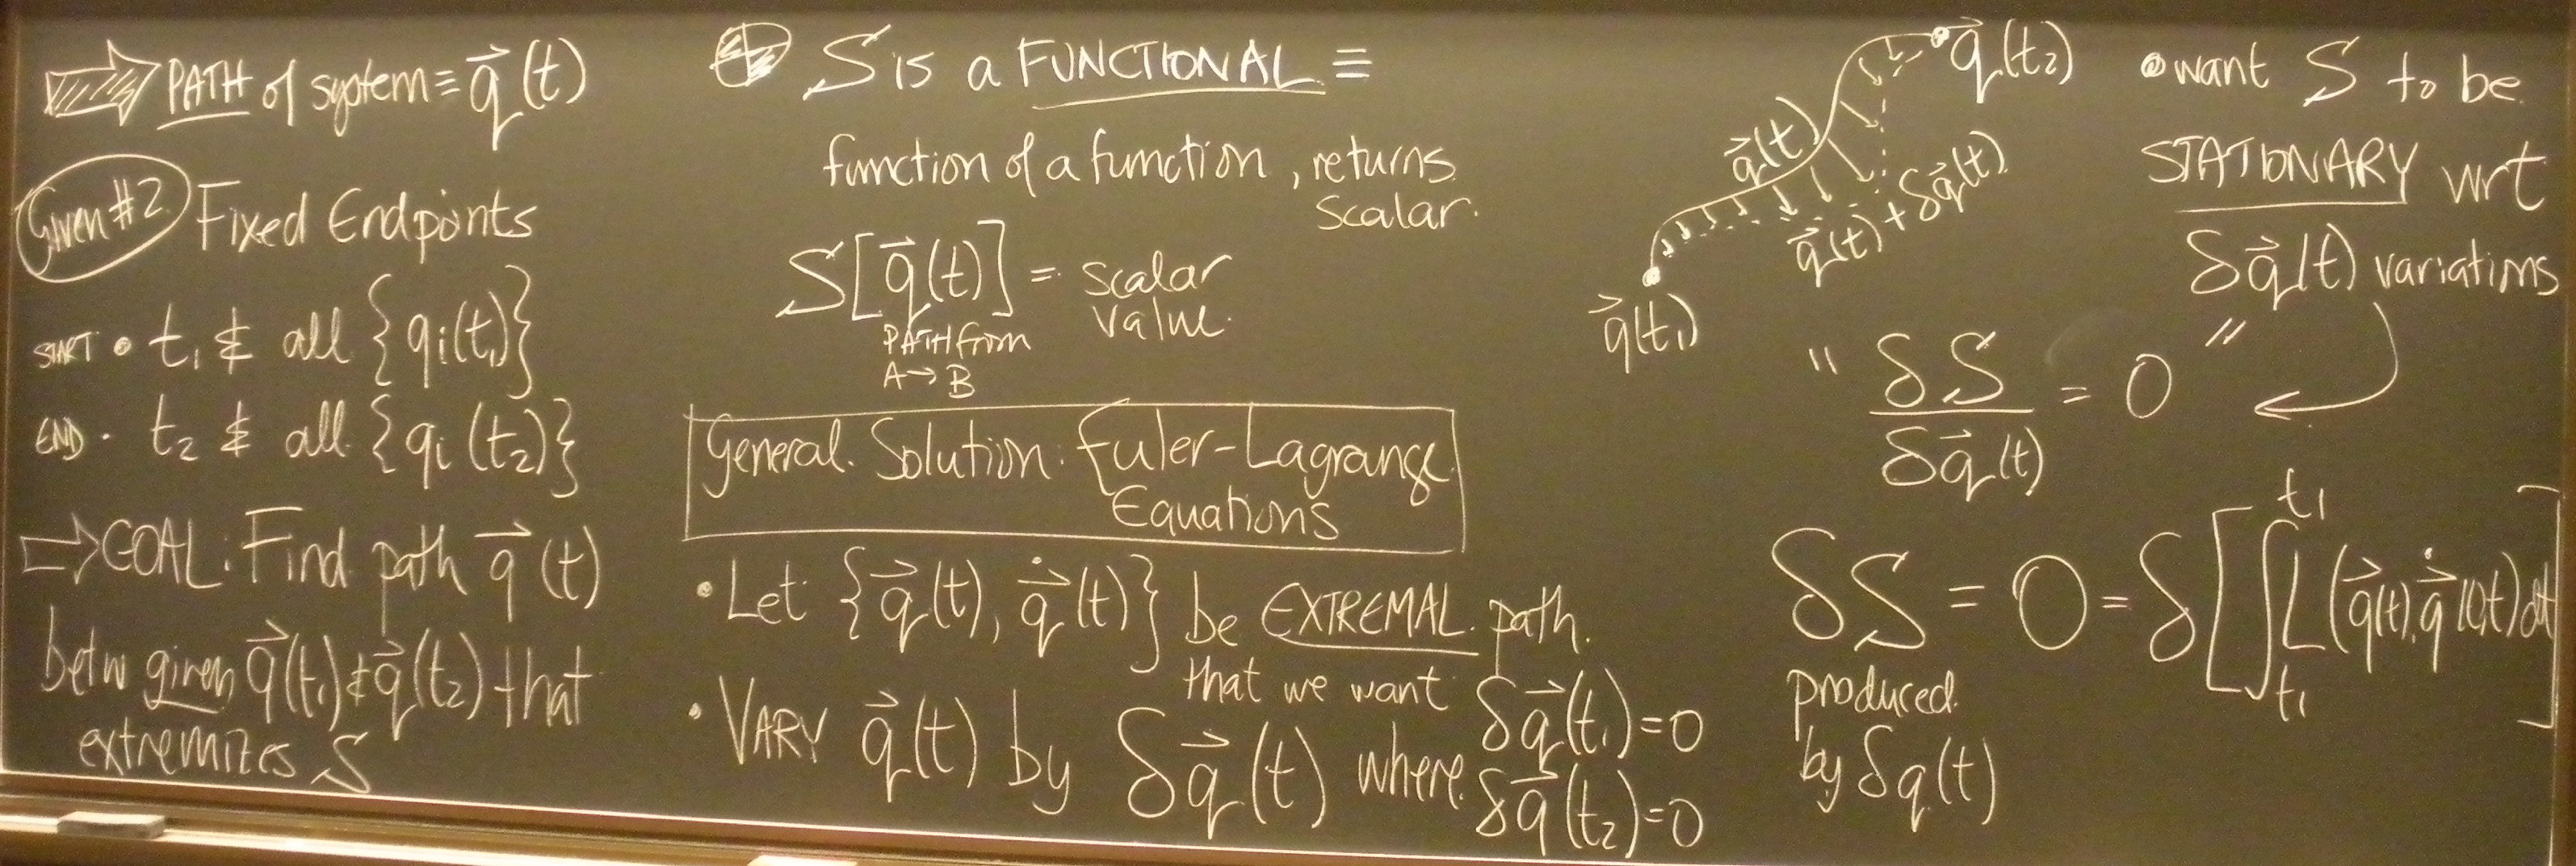 PATH of system ≡ q⃗(t)
Given #2 Fixed Endpoints
START • t₁ & all {qᵢ(t₁)}
END • t₂ & all {qᵢ(t₂)}
⇒ GOAL: Find path q⃗(t)
betw given q⃗(t₁) & q⃗(t₂) that
extremizes S
S is a FUNCTIONAL ≡
function of a function, returns
scalar.
S[q⃗(t)] = scalar
value.
PATH from
A→B
General Solution: Euler-Lagrange
Equations
• Let {q⃗(t), q⃗̇(t)} be EXTREMAL path.
that we want
• VARY q⃗(t) by δq⃗(t) where δq⃗(t₁)=0
δq⃗(t₂)=0
q⃗(t₂)
q⃗(t)
q⃗(t) + δq⃗(t)
q⃗(t₁)
• want S to be
STATIONARY wrt
δq⃗(t) variations
" δS / δq⃗(t) = 0 "
δS = 0 = δ[∫_{t₁}^{t₁} L(q⃗(t), q⃗̇(t), t) dt]
produced
by δq(t)